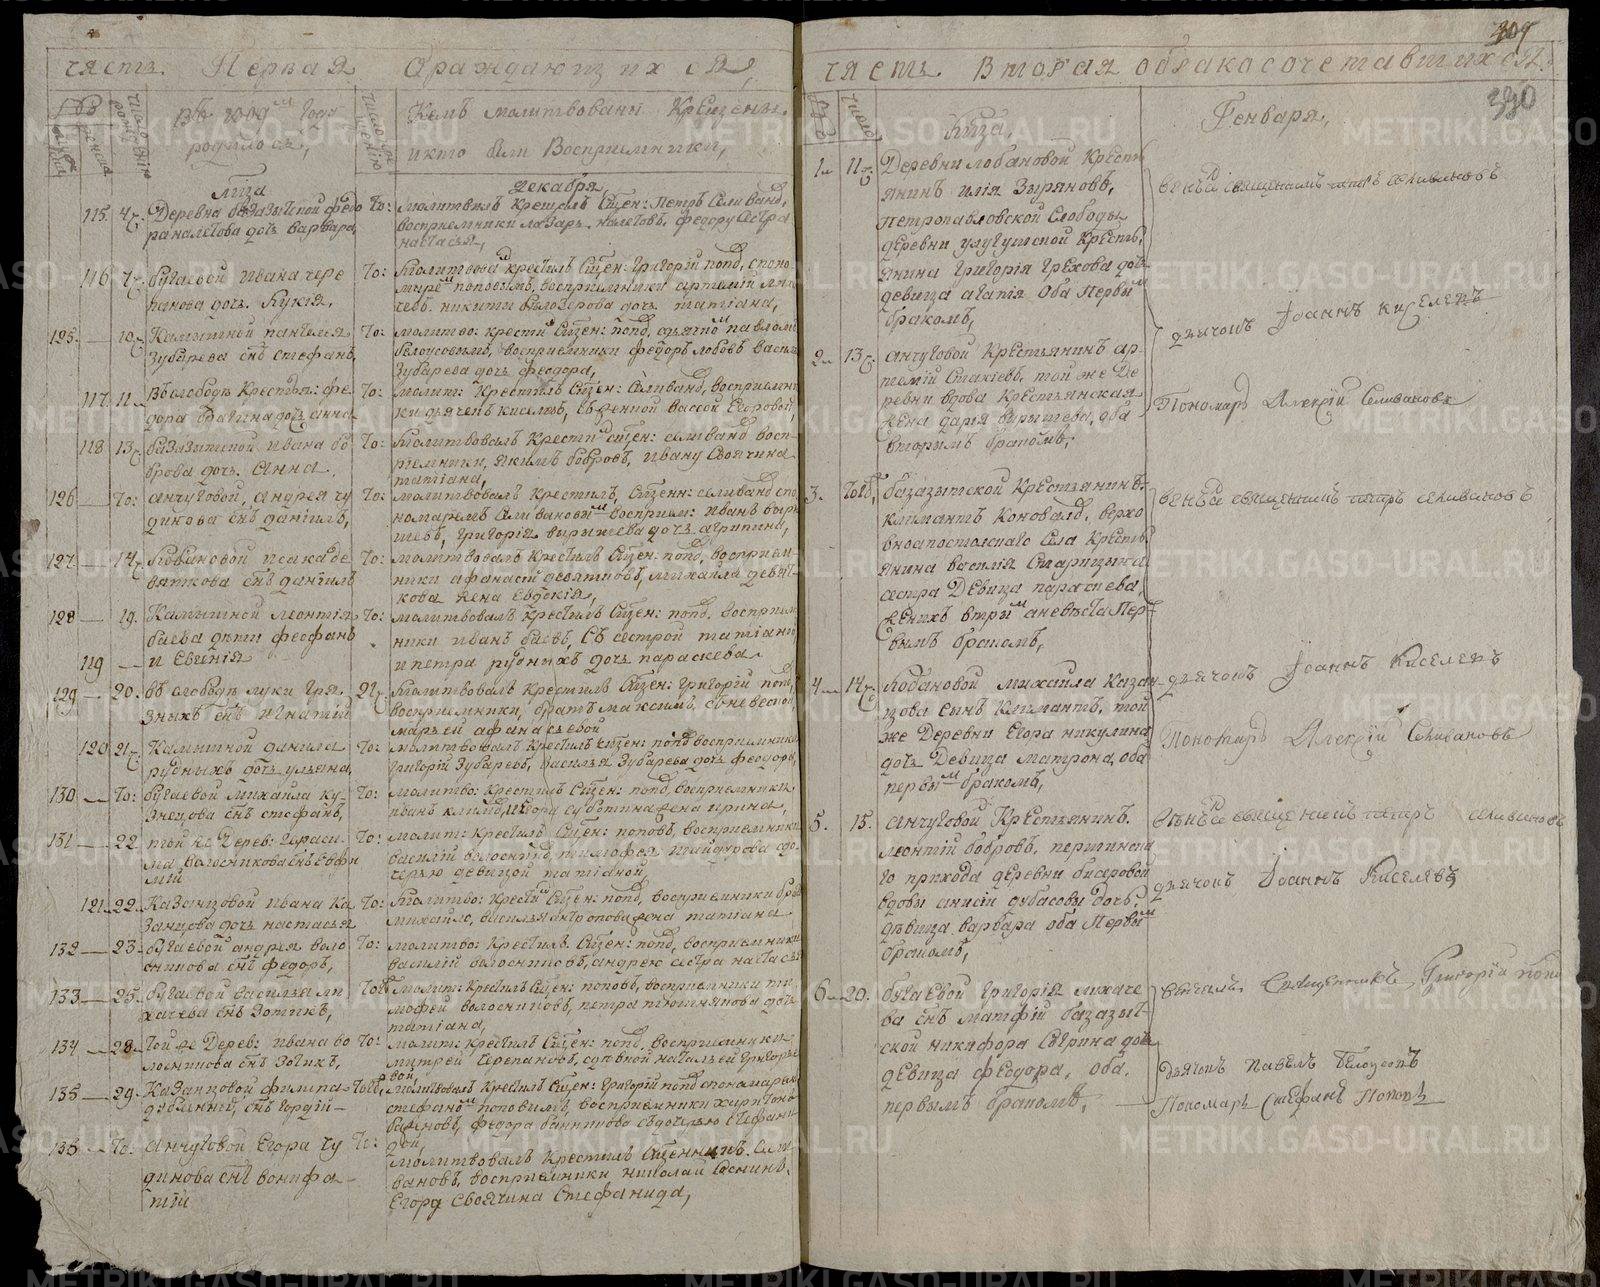 часть Первая Ораждающихся,
въ коемъ году родилося,
Кемъ молитвованы Крещены,
икто были Восприемники,
лица
декабря,
115. 4. Деревни базазыцкой федо
ра налетова дочь варвара,
То: молитвилъ Крестилъ Сщен: Петръ Селиванд,
восприемники лазарь налетовъ, федору сестра
настасья,
116 7. бугаевой ивана чере
панова дочь. Лукия,
То: Молитвова крестилъ Сщен: Григорий попд, споно
марем поповымъ, восприемники артемий
никиты белозерова дочь татиана,
125. 10. Камышной пантелея
Зубарева снъ стефанъ,
То: молитво: крести Сщен: попд, здьячком павломъ
белоусовымъ, восприемники федоръ лобовъ василя
Зубарева дочь феодора,
117. 11 Въ слободъ Крестья: фе
дора брагина дочь анна
То: молит: Крестилъ Сщен: Селиванд, восприемни
ки дьячекъ киселевъ, вассой Егоровой,
118 13. базазыцкой ивана бо
брова дочь. Анна.
То: Молитвовалъ Крестил сщен: селиванд восп
риемники, якимъ бобровъ, ивану Своячина
татиана,
126 То: анчуговой, андрея чу
динова снъ данiилъ,
То: молитвовалъ Крестилъ, Сщенн: селиванд спо
номаремъ Селивановым восприем: иванъ выры
шевъ, Григория вырышева дочь агрипина,
127 14. Лобановой исака де
вяткова снъ данiилъ
То: молитвовалъ Крестилъ Сщен: попд, восприем
ники афанасий девятковъ, михаила девят
кова жена евдокия,
128 19. Камышной леонтия
баева дети феофанъ
119 и Евгения
То: молитвовалъ крестилъ Сщен: попд, восприем
ники иванъ баевъ, съ сестрой татианы
и петра рудныхъ дочь параскева
129 20. въ слободъ луки гря
зныхъ снъ игнатий
21. Молитвовалъ Крестилъ Сщен: Григорий попд,
восприемники, братъ максимъ, сневесткой
марьей афанасьевой
120 21. Камышной данила
рудныхъ дочь ульяна,
То: молитвовалъ Крестилъ сщен: попд восприемники
Григорий Зубаревъ, василья Зубарева дочь феодора,
130 То: бугаевой михаила ку
знецова снъ стефанъ,
То: молитво: Крестилъ Сщен: попд, восприемники
иванъ егора суботина жена ирина,
131 22. той же Дерев: Гараси
ма, волосникова снъ Евфи
мий
То: молит: Крестилъ Сщен: поповъ, восприемники
василий волосниковъ, тимофея шайдурова до
черью девицой татианой,
121 22. Казанцовой ивана ка
занцова дочь настасья
То: Молитво: Крестил Сщен: попд, восприемники братъ
михайло, василья антропова жена татиана
132 23. бугаевой андрея воло
сникова снъ федоръ,
То: молитво: Крестилъ. Сщен: попд, восприемники
василий волосниковъ, андрею сестра настасья
133 25. бугаевой василья ли
хачева снъ Зотикъ,
Тогд. молит: Крестилъ Сщен: поповъ, восприемники ти
мофей волосниковъ, петра дочь
татиана,
134 28. Той же Дерев: ивана во
лосникова снъ Зотикъ,
То: молит: Крестилъ Сщен: попд, восприемники
митрей Черепановъ, судовной натальей григорье
вой,
135 29. Казанцовой филипа
снъ гордий
Тогд. молитвовалъ Крестилъ Сщен: Григорий попд спономаремъ
стефаном поповымъ, восприемники
федора банникова съдочерью стефани
дой,
136 То: анчуговой Егора чу
динова снъ вонифа
тий
То: молитвовалъ Крестилъ Сщенникъ. Сели
вановъ, восприемники николай
Егора Своячина Стефанида,
часть Вторая обракосочетавшихся.
309
330
лица,
Генваря,
1. 11. Деревни лобановой Крестъ
янинъ илия Зыряновъ,
Петропавловской Слободы
деревни улугушской Кресть
янина Григория Грехова дочь
девица агатия Оба Первым
бракомъ,
венча священникъ петръ селивановъ
дьячокъ Iоаннъ Киселевъ
2. 13. анчуговой Крестьянинъ ар
темий Стахиевъ, той же Де
ревни вдова Крестьянская
жена дарья вырышева, оба
вторымъ бракомъ,
Пономарь Алексiй Селивановъ
3. Тогд, базазытской Крестьянинъ
климантъ Коновалд, верхо
вноапостольскаго Села Кресть
янина василия Старицына
сестра Девица параскева,
женихъ втрим аневеста Пер
вымъ бракомъ,
венча священникъ петръ селивановъ
4. 14. Лобановой михаила Казан
цова сынъ климантъ, той
же Деревни Егора никулина
дочь Девица Матрона, оба
первым бракомъ,
дьячокъ Iоаннъ Киселевъ
Пономарь Алексiй Селивановъ
5. 15. анчуговой Крестьянинъ.
леонтий бобровъ, першинска
го прихода деревни бисеровой
вдовы анисии дубасовы дочь
девица варвара оба Первым
бракомъ,
венча священникъ петръ селивановъ
дьячокъ Iоаннъ Киселевъ
6. 20. бугаевой григория лихаче
ва снъ матфий базазыт
ской никифора Сычина дочь
девица феодора, оба,
первымъ бракомъ,
венчалъ Священникъ Григорий попд
дьячокъ Павелъ Белоусовъ
Пономарь Стефанъ Поповъ
METRIKI.GASO-URAL.RU